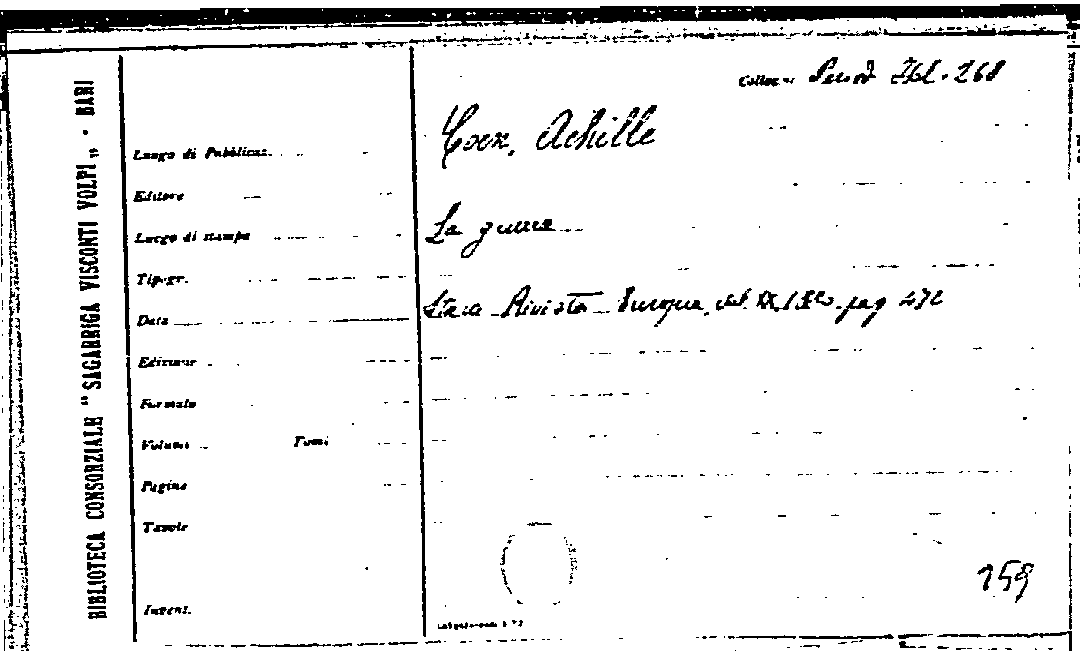 BIBLIOTECA CONSORZIALE "SAGARRIGA VISCONTI VOLPI„ - BARI
Collocaz. Period Ital. 268
Coen, Achille
Luogo di Pubblicaz.
Editore
La guerra
Luogo di stampa
Tipogr.
Data
Sta in Rivista Europea, vol. IX, pag 472
Edizione
Formato
Volumi Tomi
Pagine
Tavole
159
Invent.